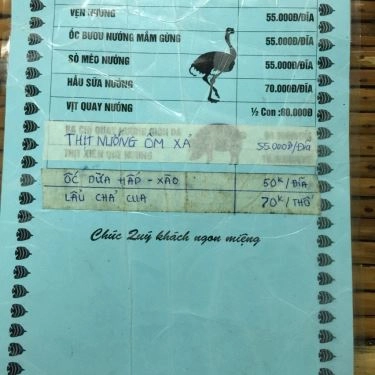 VẸN NƯỚNG 55.000Đ/ĐĨA
ỐC BƯƠU NƯỚNG MẮM GỪNG 55.000Đ/ĐĨA
SÒ MÉO NƯỚNG 55.000Đ/ĐĨA
HÀU SỮA NƯỚNG 70.000Đ/ĐĨA
VỊT QUAY NƯỚNG ½ Con :80.000Đ
THỊT NƯỚNG ÔM XẢ 55.000Đ/ĐĨA
ỐC DỪA HẤP - XÀO 50K/ĐĨA
LẨU CHẢ CUA 70K/THỐ
Chúc Quý khách ngon miệng